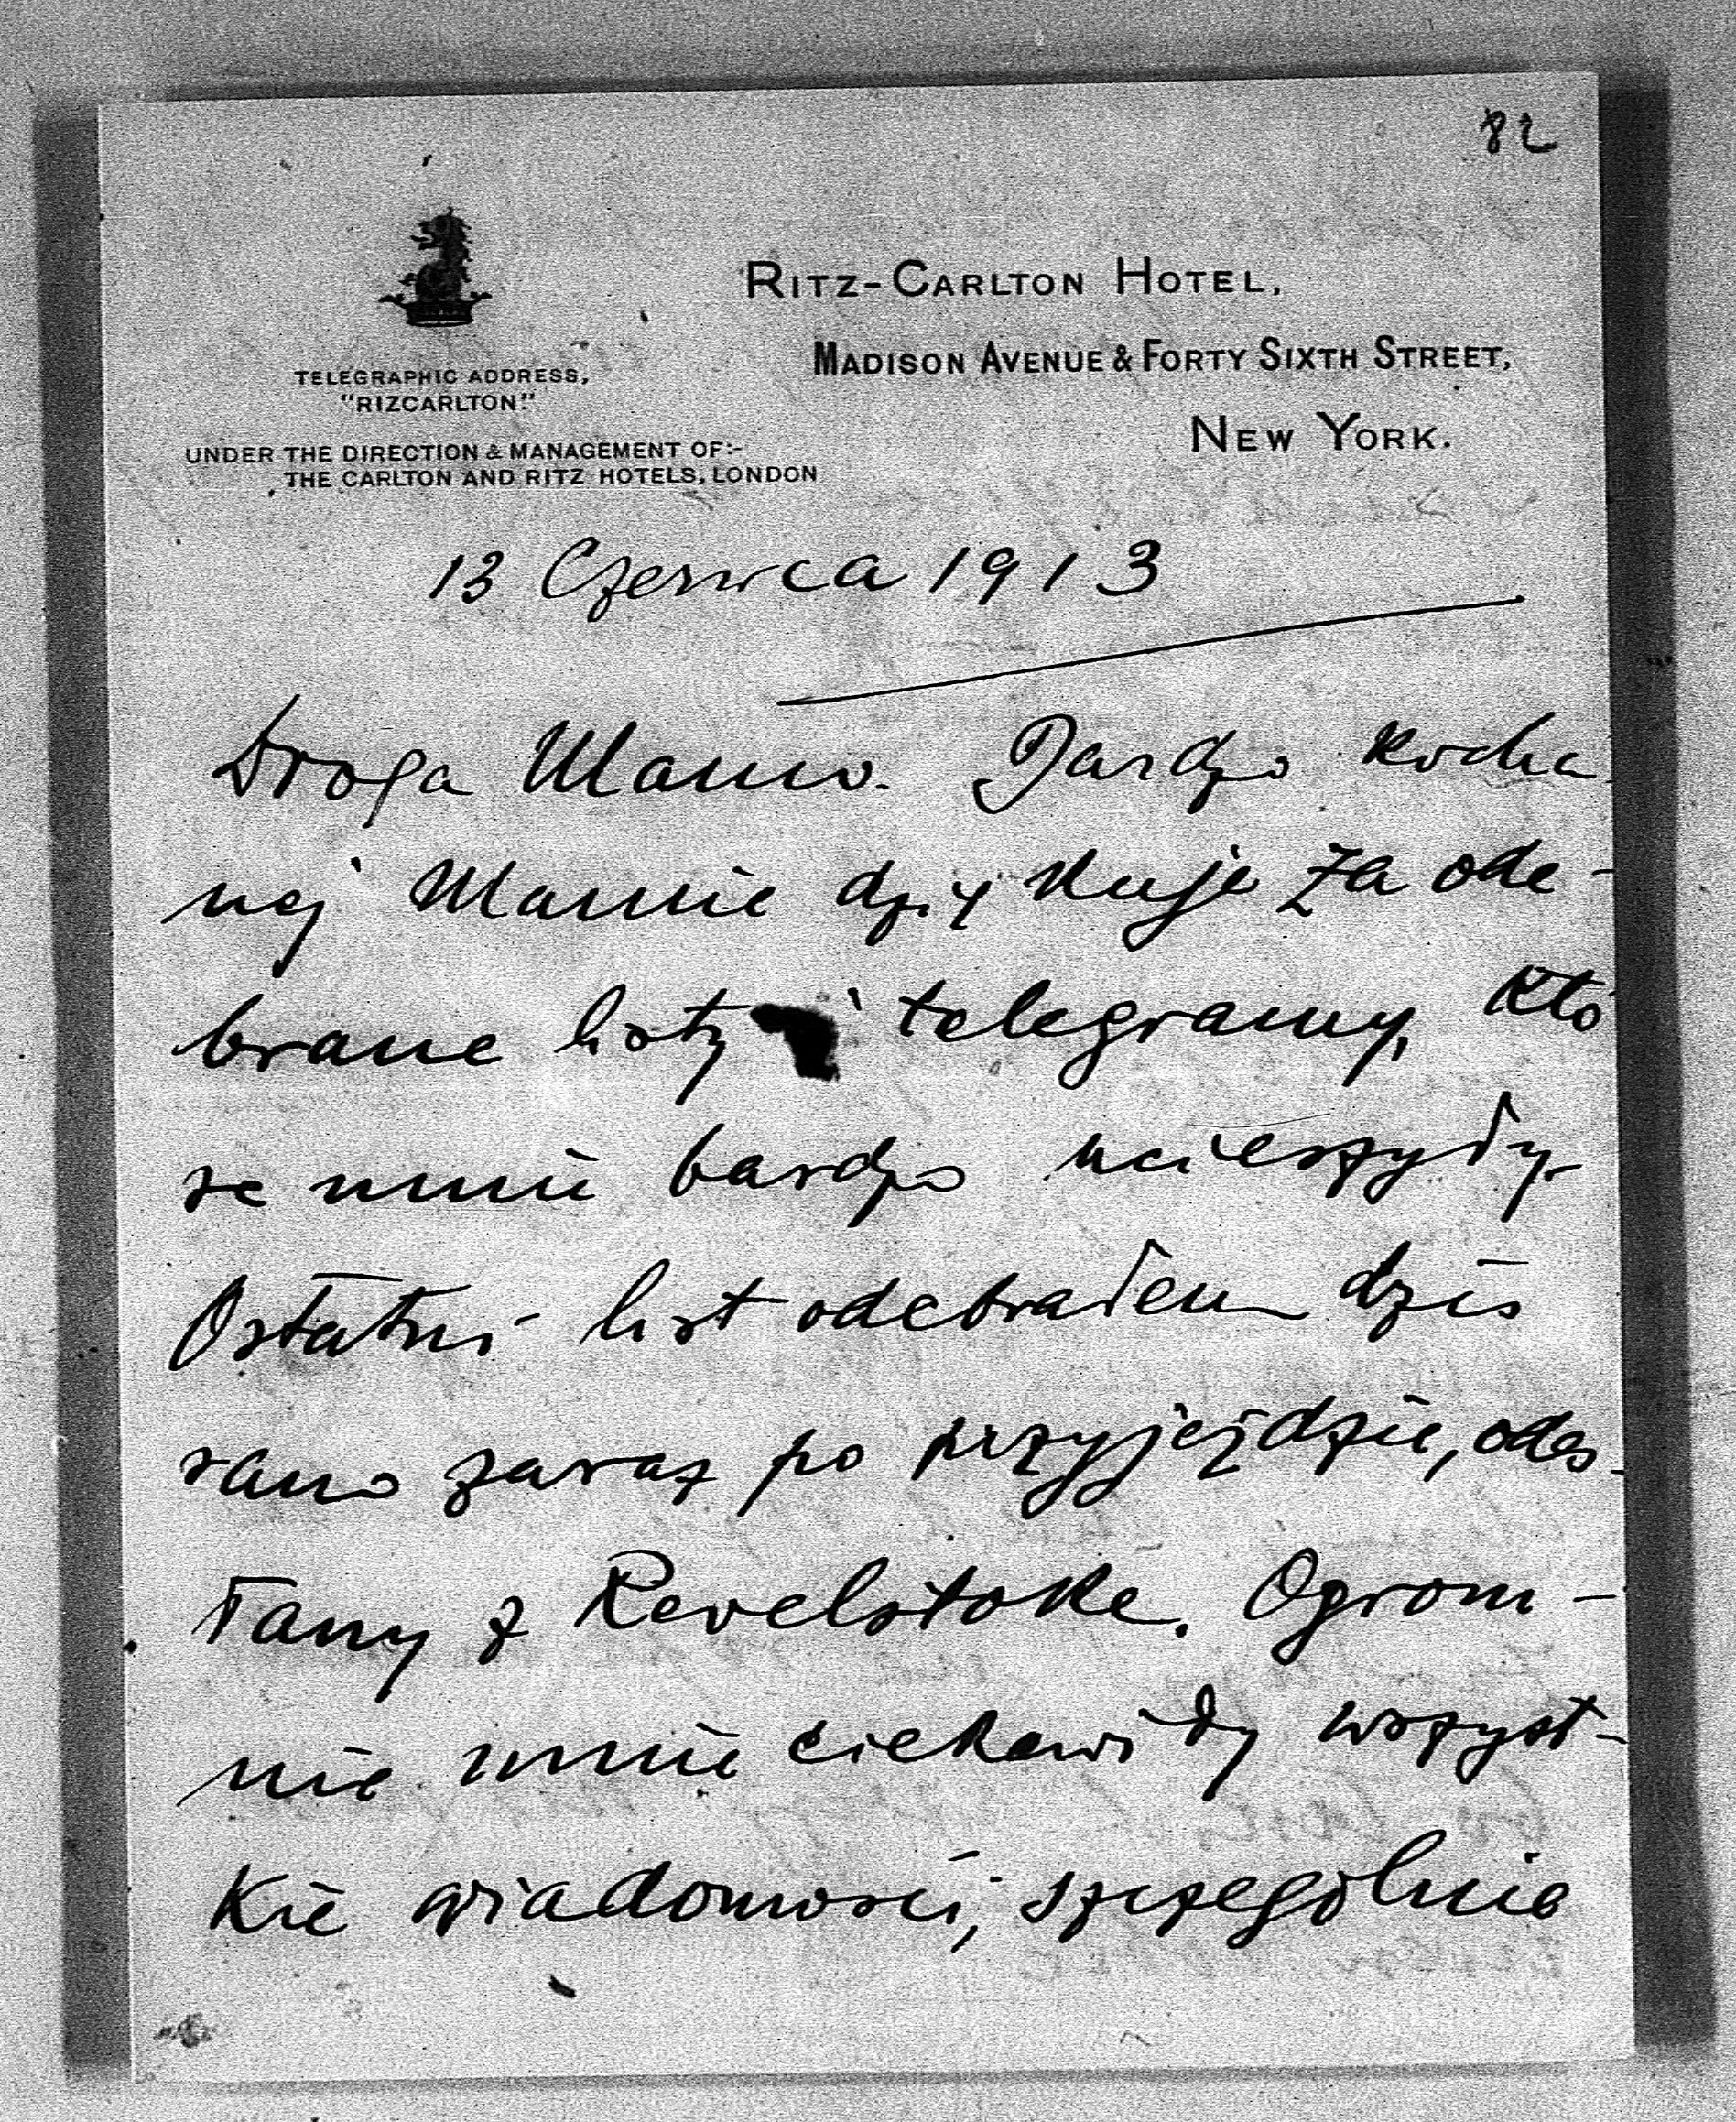 82
RITZ-CARLTON HOTEL,
MADISON AVENUE & FORTY SIXTH STREET,
NEW YORK.
TELEGRAPHIC ADDRESS,
"RIZCARLTON."
UNDER THE DIRECTION & MANAGEMENT OF:-
THE CARLTON AND RITZ HOTELS, LONDON
13 Czerwca 1913
Droga Mamo. Bardzo kocha
nej Mamie dziękuje za ode-
brane listy i telegramy, któ
re mnie bardzo ucieszyły.
Ostatni list odebrałem dziś
rano zaraz po przyjeździe, odes-
łany z Revelstoke. Ogrom-
nie mnie ciekawiły wszyst-
kie wiadomości, szczególnie